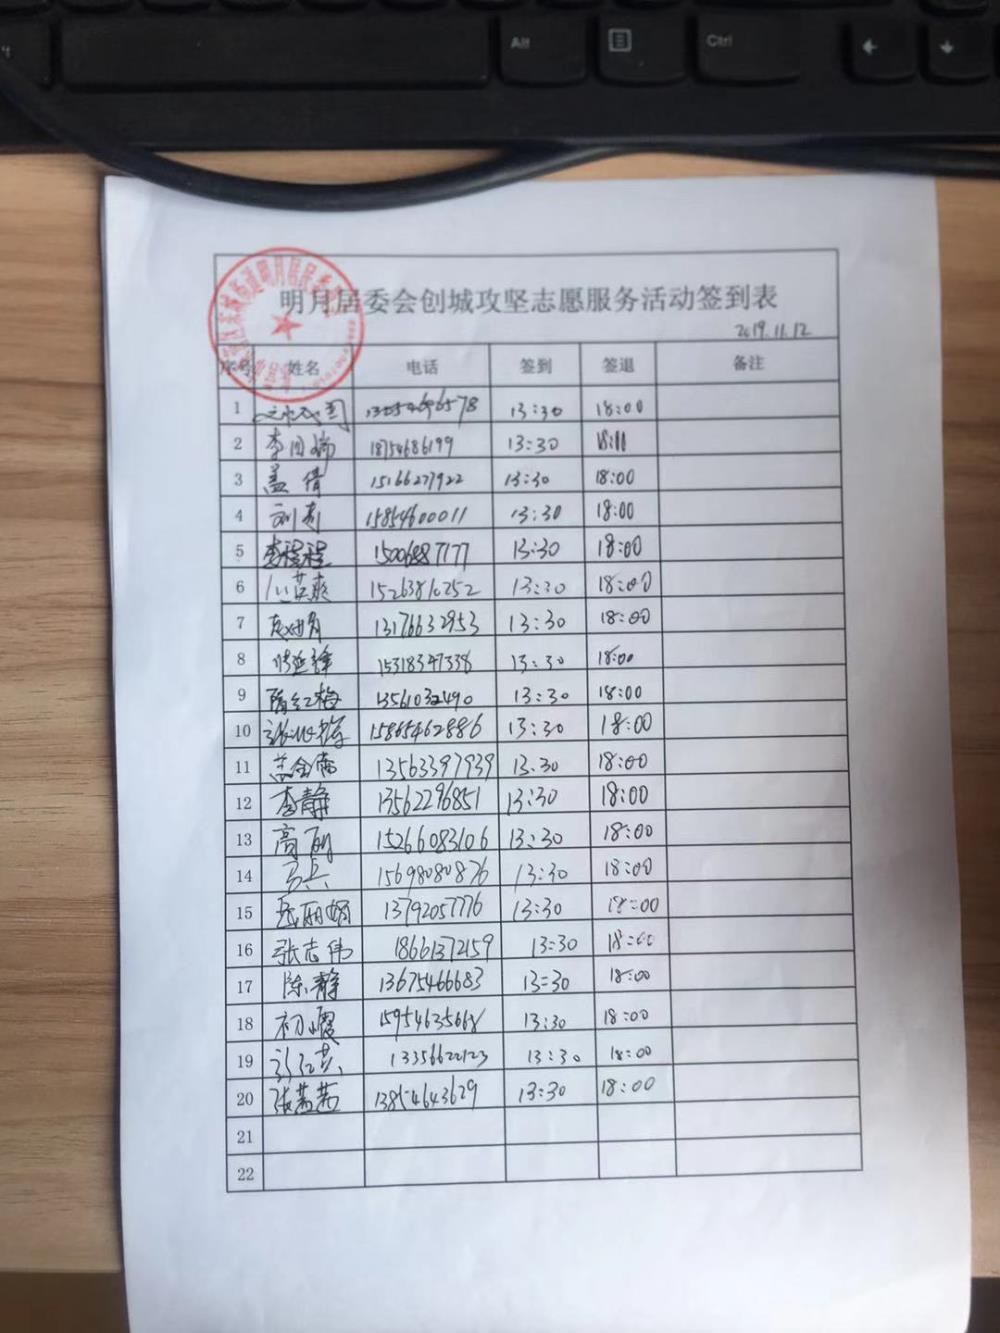 Alt
Ctrl
明月居委会创城攻坚志愿服务活动签到表
2019.11.12
序号 姓名 电话 签到 签退 备注
1 13:30 18:00
2 李 18754686199 13:30 18:11
3 盖倩 15166277922 13:30 18:00
4 刘 15854600011 13:30 18:00
5 李程程 15006887177 13:30 18:00
6 13:30 18:00
7 13176632953 13:30 18:00
8 15318347338 13:30 18:00
9 隋红梅 13:30 18:00
10 张 15865462886 13:30 18:00
11 盖 13563397939 13:30 18:00
12 李静 13562296851 13:30 18:00
13 高丽 15266083106 13:30 18:00
14 15698080876 13:30 18:00
15 岳丽娟 13792057776 13:30 18:00
16 张志伟 18661372159 13:30 18:00
17 陈静 13675466683 13:30 18:00
18 初霞 15954635668 13:30 18:00
19 13356622123 13:30 18:00
20 张茜茜 13854643629 13:30 18:00
21
22